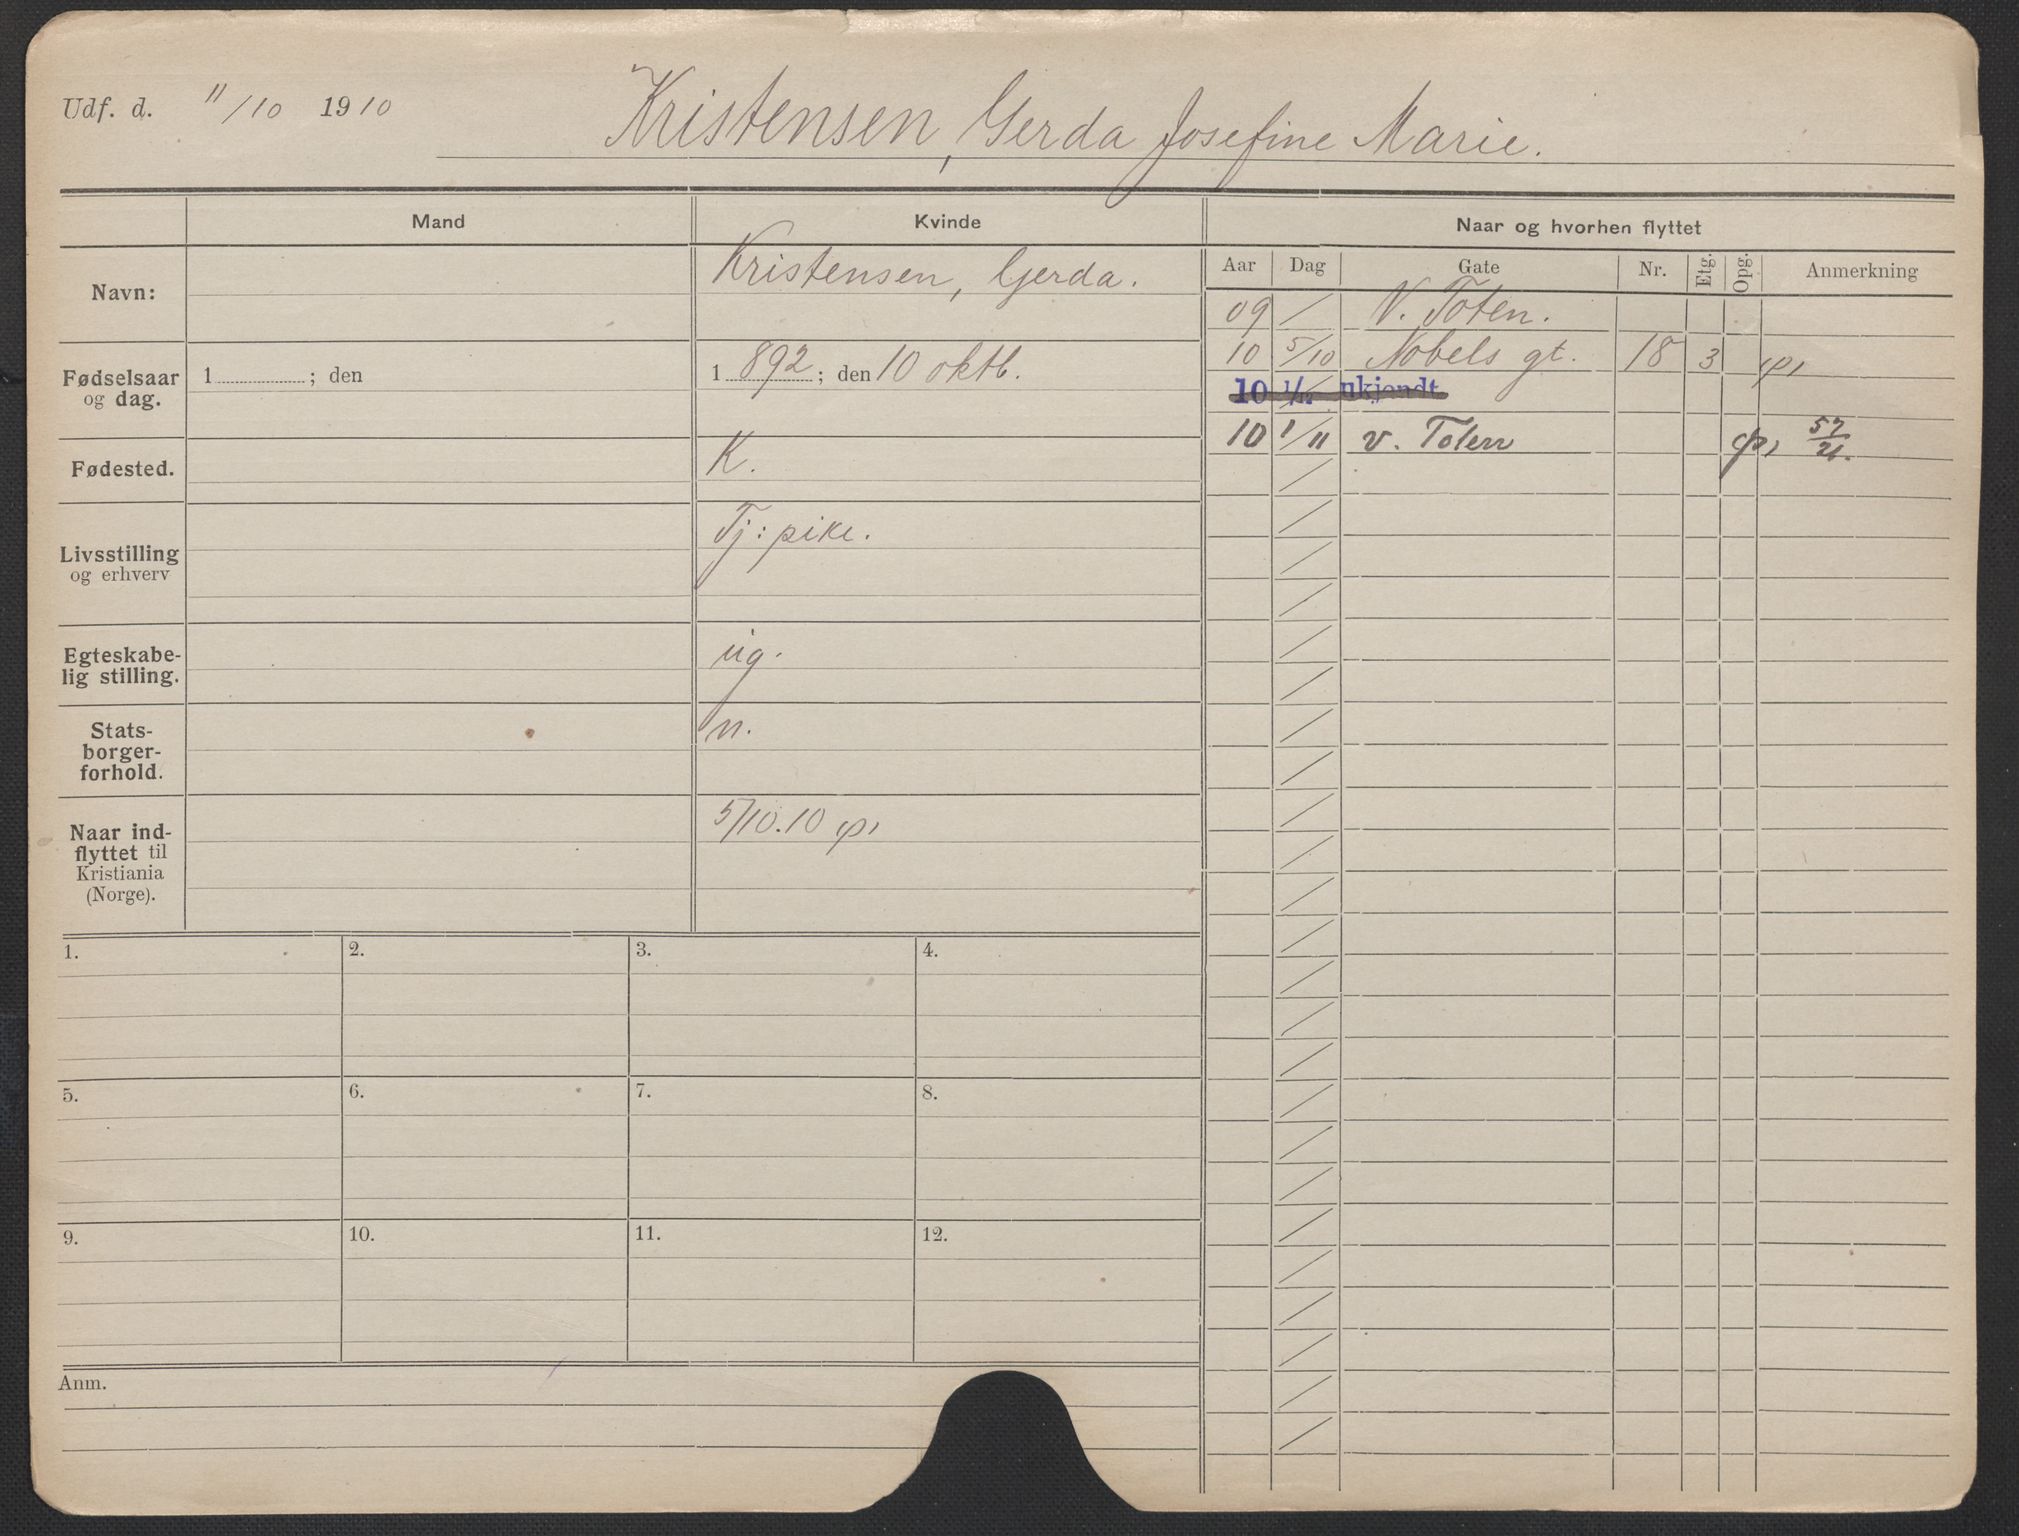 Udf. d. 11/10 1910
Kristensen, Gerda Josefine Marie.
Mand Kvinde Naar og hvorhen flyttet
Aar Dag Gate Nr. Etg. Opg. Anmerkning
Navn: Kristensen, Gerda.
Fødselsaar og dag. 1 ; den 1892; den 10 oktb.
Fødested. K.
Livsstilling og erhverv Tj: pike.
Egteskabelig stilling. ug.
Statsborgerforhold. n.
Naar indflyttet til Kristiania (Norge). 5/10.10
09 / V. Toten.
10 5/10 Nobels gt. 18 3
10 1/12 ukjendt
10 1/11 v. Toten 57/21.
1. 2. 3. 4.
5. 6. 7. 8.
9. 10. 11. 12.
Anm.